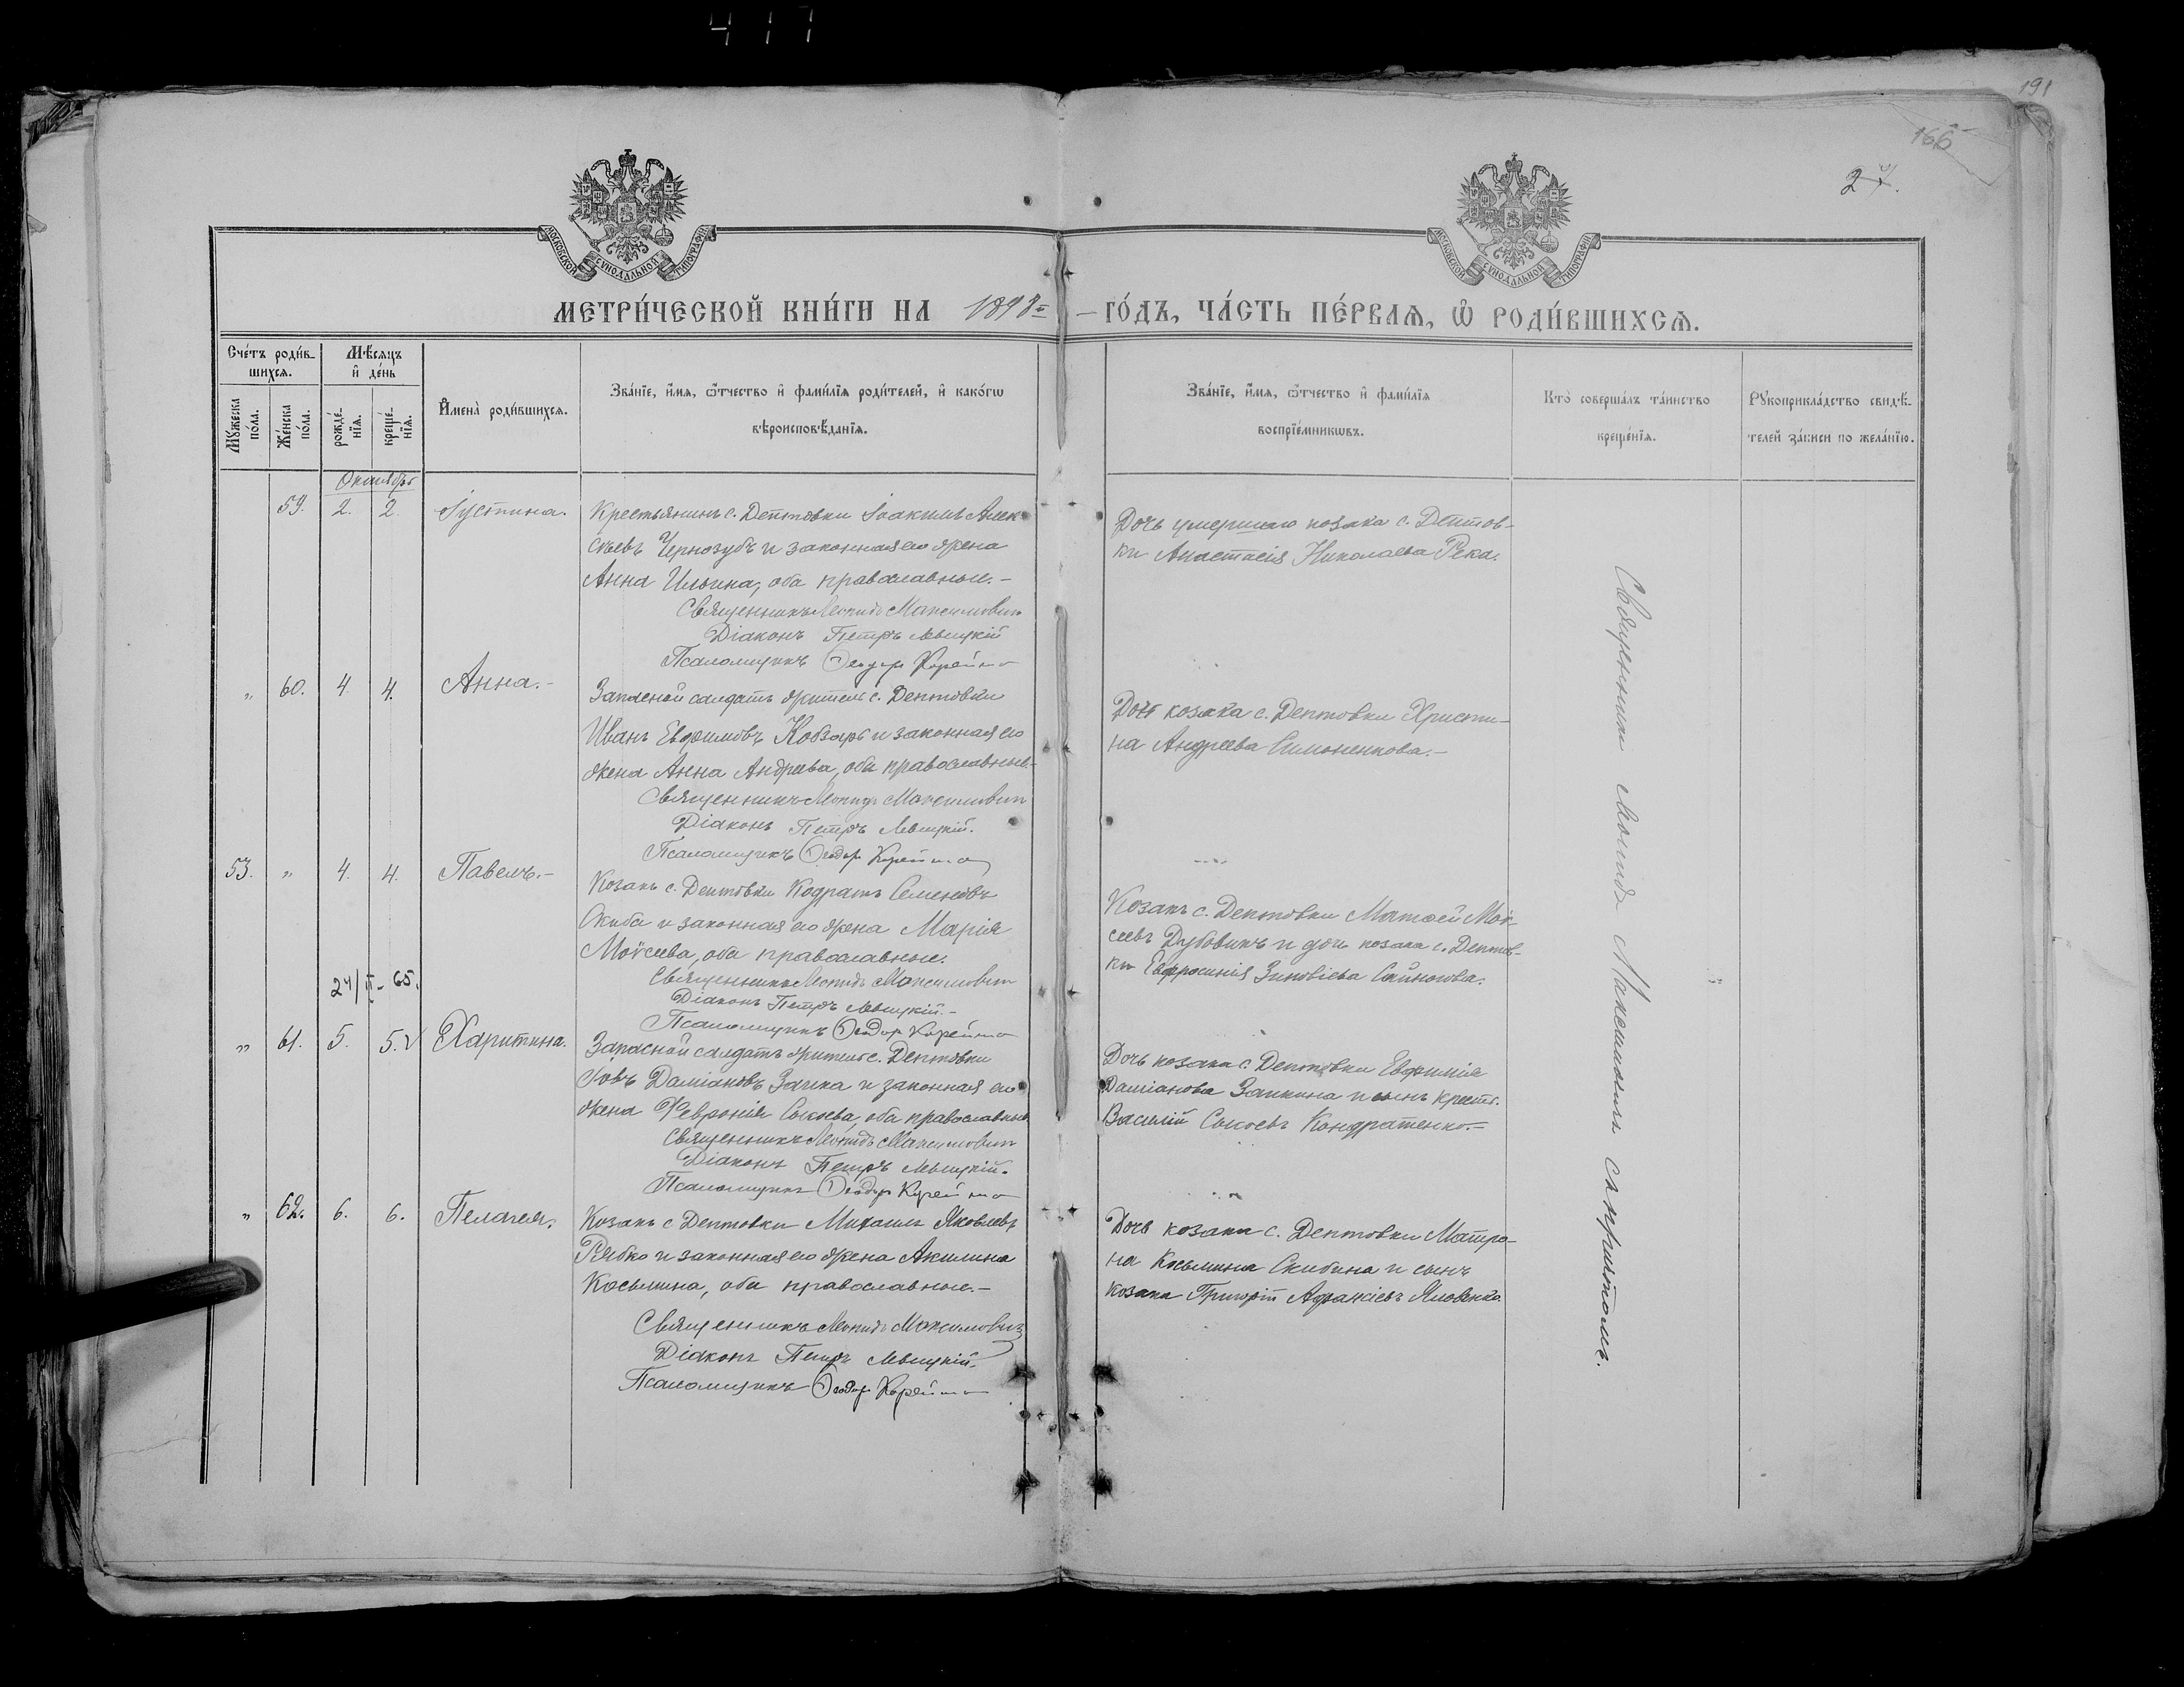 417
191
166
27.
МОСКОВСКОЙ СУНОДАЛЬНОЙ ТИПОГРАФІИ
МОСКОВСКОЙ СУНОДАЛЬНОЙ ТИПОГРАФІИ
МЕТРИ́ЧЕСКОЙ КНИ́ГИ НА 1898 – ГО́ДЪ, ЧА́СТЬ ПЕ́РВАѦ, Ѽ РОДИ́ВШИХСѦ.
Сче́тъ роди́в-
шихсѧ.
Мꙋ́жеска по́ла.
Же́нска по́ла.
Мѣ́сѧцъ
и҆ де́нь
рожде́-
нїѧ.
креще́-
нїѧ.
И҆мена̀ роди́вшихсѧ.
Зва́нїе, и҆́мѧ, ѻ҆́тчество и҆ фами́лїѧ роди́телей, и҆ како́гѡ
вѣроисповѣ́данїѧ.
Зва́нїе, и҆́мѧ, ѻ҆́тчество и҆ фами́лїѧ
воспрїе́мникѡвъ.
Кто̀ соверша́лъ та́инство
креще́нїѧ.
Рꙋкоприкла́дство свидѣ́-
телей за́писи по жела́нїю.
Октябрь
59. 2. 2. Іустина.
Крестьянинъ с. Дептовки Іоакимъ Алек-
сѣевъ Чернозубъ и законная его жена
Анна Ильина, оба православные.–
Священникъ Леонидъ Максимовичъ
Діаконъ Петръ Левицкій
Псаломщикъ Ѳеодоръ
Дочь умершаго козака с. Дептов-
ки Анастасія Николаева Река.
„ 60. 4. 4. Анна.–
Запасной солдатъ житель с. Дептовки
Иванъ Евфимовъ Кобзарь и законная его
жена Анна Андреева, оба православные.–
Священникъ Леонидъ Максимовичъ
Діаконъ Петръ Левицкій.
Псаломщикъ Ѳеодоръ
Дочь козака с. Дептовки Христи-
на Андреева Симоненкова.–
53. „ 4. 4. Павелъ.–
Козакъ с. Дептовки Кодратъ Семеновъ
Скиба и законная его жена Марія
Моѵсеева, оба православные.
Священникъ Леонидъ Максимовичъ
Діаконъ Петръ Левицкій.–
Псаломщикъ Ѳеодоръ
Козакъ с. Дептовки Матѳей Моѵ-
сеевъ Дубовикъ и дочь козака с. Дептов-
ки Евфросинія Зиновіева
24/II – 65.
„ 61. 5. 5. V Харитина.
Запасной солдатъ житель с. Дептовки
Іовъ Даміановъ Заика и законная его
жена Февронія Сысоева, оба православные
Священникъ Леонидъ Максимовичъ
Діаконъ Петръ Левицкій.
Псаломщикъ Ѳеодоръ
Дочь козака с. Дептовки Евфимія
Даміанова Заикина и сынъ крест.
Василій Сысоевъ Кондратенко.–
„ 62. 6. 6. Пелагея.
Козакъ с Дептовки Михаилъ Яковлевъ
Рябко и законная его жена Акилина
Косьмина, оба православные.–
Священникъ Леонидъ Максимовичъ
Діаконъ Петръ Левицкій.
Псаломщикъ Ѳеодоръ
Дочь козака с. Дептовки Матро-
на Косьмина Скибина и сынъ
козака Григорій Яковенко.
Священникъ Леонидъ Максимовичъ съ причтомъ.